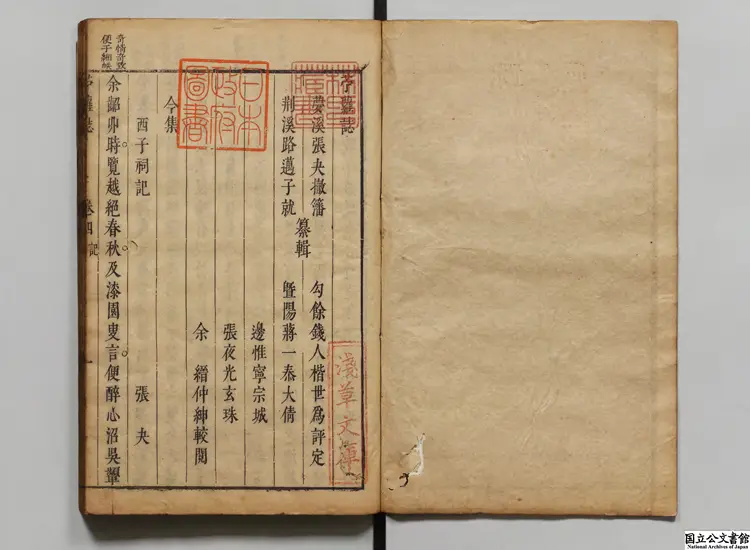 苧蘿誌
夢溪張夬撤籓
荆溪路邁子就
纂輯
勾餘錢人楷世爲評定
暨陽蔣一泰大倩
邊惟寧宗城
張夜光玄珠
余縉仲紳較閱
今集
西子祠記
張夬
余韶丱時覽越絕春秋及漆園叟言便醉心沼吳
苧蘿誌
卷四
記
一
奇情奇致
便子
日本
政府
圖書
林氏
藏書
淺草文庫
国立公文書館
National Archives of Japan